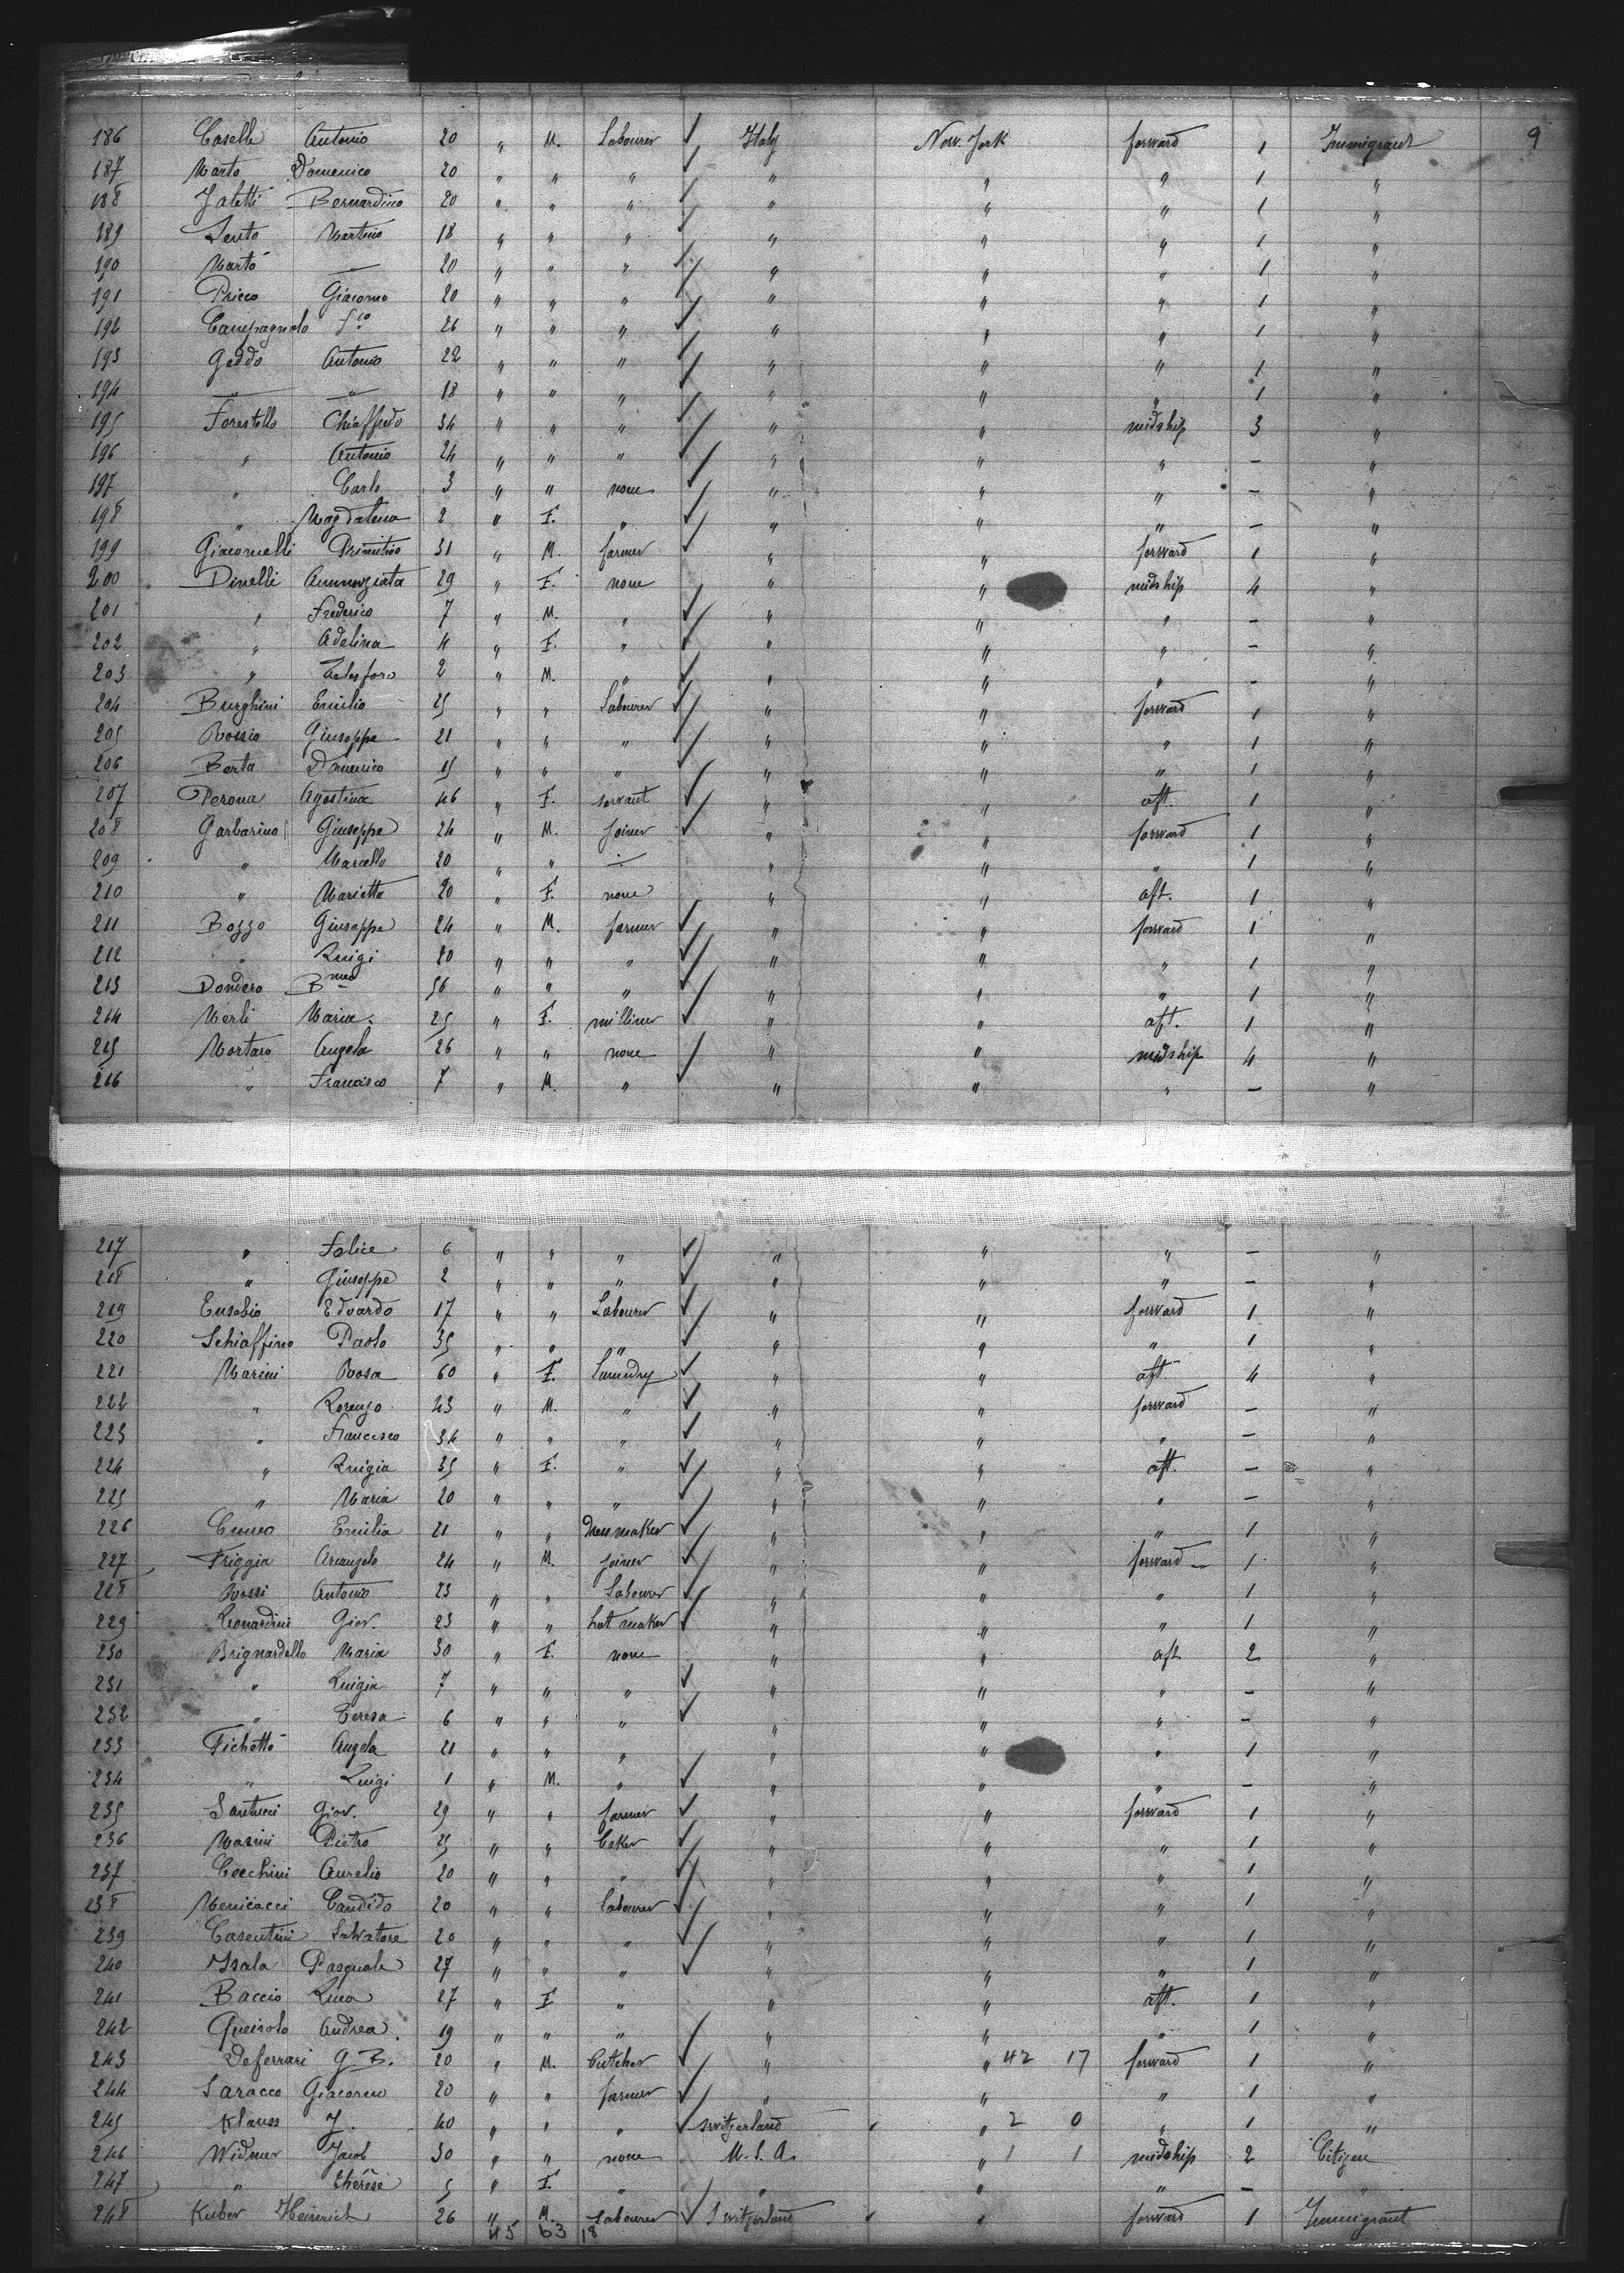 186 Casella Antonio 20 " M. Labourer ✓ Italy New. York forward 1 Immigrant 9
187 Marta Domenico 20 " " " ✓ " " " 1 "
188 Bernardino 20 " " " ✓ " " " 1 "
189 Martino 18 " " " ✓ " " " 1 "
190 — 20 " " " ✓ " " " 1 "
191 Giacomo 20 " " " ✓ " " " 1 "
192 Campagnolo 26 " " " ✓ " " " 1 "
193 Geddo Antonio 22 " " " ✓ " " " 1 "
194 — — 18 " " " ✓ " " " 1 "
195 Forestello Chiaffredo 34 " " " ✓ " " midship 3 "
196 " Antonio 24 " " " ✓ " " " – "
197 " Carlo 3 " " none ✓ " " " – "
198 " Magdalena 2 " F. " ✓ " " " – "
199 Giacomelli Primitivo 31 " M. farmer ✓ " " forward 1 "
200 Dinelli Annunziata 29 " F. none " " midship 4 "
201 " Frederico 7 " M. " ✓ " " " – "
202 " Adelina 4 " F. " ✓ " " " – "
203 " Telesforo 2 " M. " ✓ " " " – "
204 Burghini Emilio 25 " " Labourer ✓ " " forward 1 "
205 Rossio Giuseppe 21 " " " ✓ " " " 1 "
206 Berta Domenico 15 " " " ✓ " " " 1 "
207 Perona Agostina 46 " F. servant ✓ " " aft. 1 "
208 Garbarino Giuseppe 24 " M. joiner ✓ " " forward 1 "
209 " Marcello 20 " " — " " " 1 "
210 " Marietta 20 " F. none " " aft. 1 "
211 Bozzo Giuseppe 24 " M. farmer ✓ " " forward 1 "
212 " Luigi 20 " " " ✓ " " " 1 "
213 Dondero Bmeo 56 " " " ✓ " " " 1 "
214 Merli Maria. 25 " F. milliner ✓ " " aft. 1 "
215 Mortaro Angela 26 " " none ✓ " " midship 4 "
216 " Francisco 7 " M. " " " " – "
217 " Felice 6 " " " ✓ " " " – "
218 " Giuseppe 2 " " " ✓ " " " – "
219 Eusebio Edoardo 17 " " Labourer ✓ " " forward 1 "
220 Schiaffino Paolo 35 " " " ✓ " " " 1 "
221 Marini Rosa 60 " F. Laundry ✓ " " aft. 4 "
222 " Lorenzo 43 " M. " ✓ " " forward – "
223 " Francesco 34 " " " ✓ " " " – "
224 " Luigia 35 " F. " ✓ " " aft. – "
225 " Maria 20 " " " ✓ " " " – "
226 Cuneo Emilia 21 " " Dressmaker ✓ " " " 1 "
227 Friggia Arcangelo 24 " M. joiner ✓ " " forward 1 "
228 Rossi Antonio 23 " " Labourer ✓ " " " 1 "
229 Leonardini Giov. 23 " " hat maker ✓ " " " 1 "
230 Brignardello Maria 30 " F. none " " aft 2 "
231 " Luigia 7 " " " ✓ " " " – "
232 " Teresa 6 " " " ✓ " " " – "
233 Fichetto Angela 21 " " " " " " 1 "
234 " Luigi 1 " M. " ✓ " " " – "
235 Santucci Giov. 29 " " farmer ✓ " " forward 1 "
236 Masini Pietro 25 " " baker ✓ " " " 1 "
237 Cecchini Aurelio 20 " " " ✓ " " " 1 "
238 Menicacci Candido 20 " " Labourer ✓ " " " 1 "
239 Casentini Salvatore 20 " " " ✓ " " " 1 "
240 Isola Pasquale 27 " " " ✓ " " " 1 "
241 Baccio Luca 27 " F " " " aft. 1 "
242 Queirolo Andrea. 19 " " " ✓ " " " 1 "
243 Deferrari G B. 20 " M. butcher ✓ " " 42 17 forward 1 "
244 Saracco Giacomo 20 " " farmer ✓ " " " 1 "
245 Klauss J. 40 " " " ✓ Switzerland " 2 0 " 1 "
246 Widmer Jacob 30 " " none U. S. A. " 1 1 midship 2 Citizen
247 " Thérèse 5 " F. " " " " – "
248 Kuber Heinrich 26 " M. Labourer ✓ Switzerland " forward 1 Immigrant
45 63 18